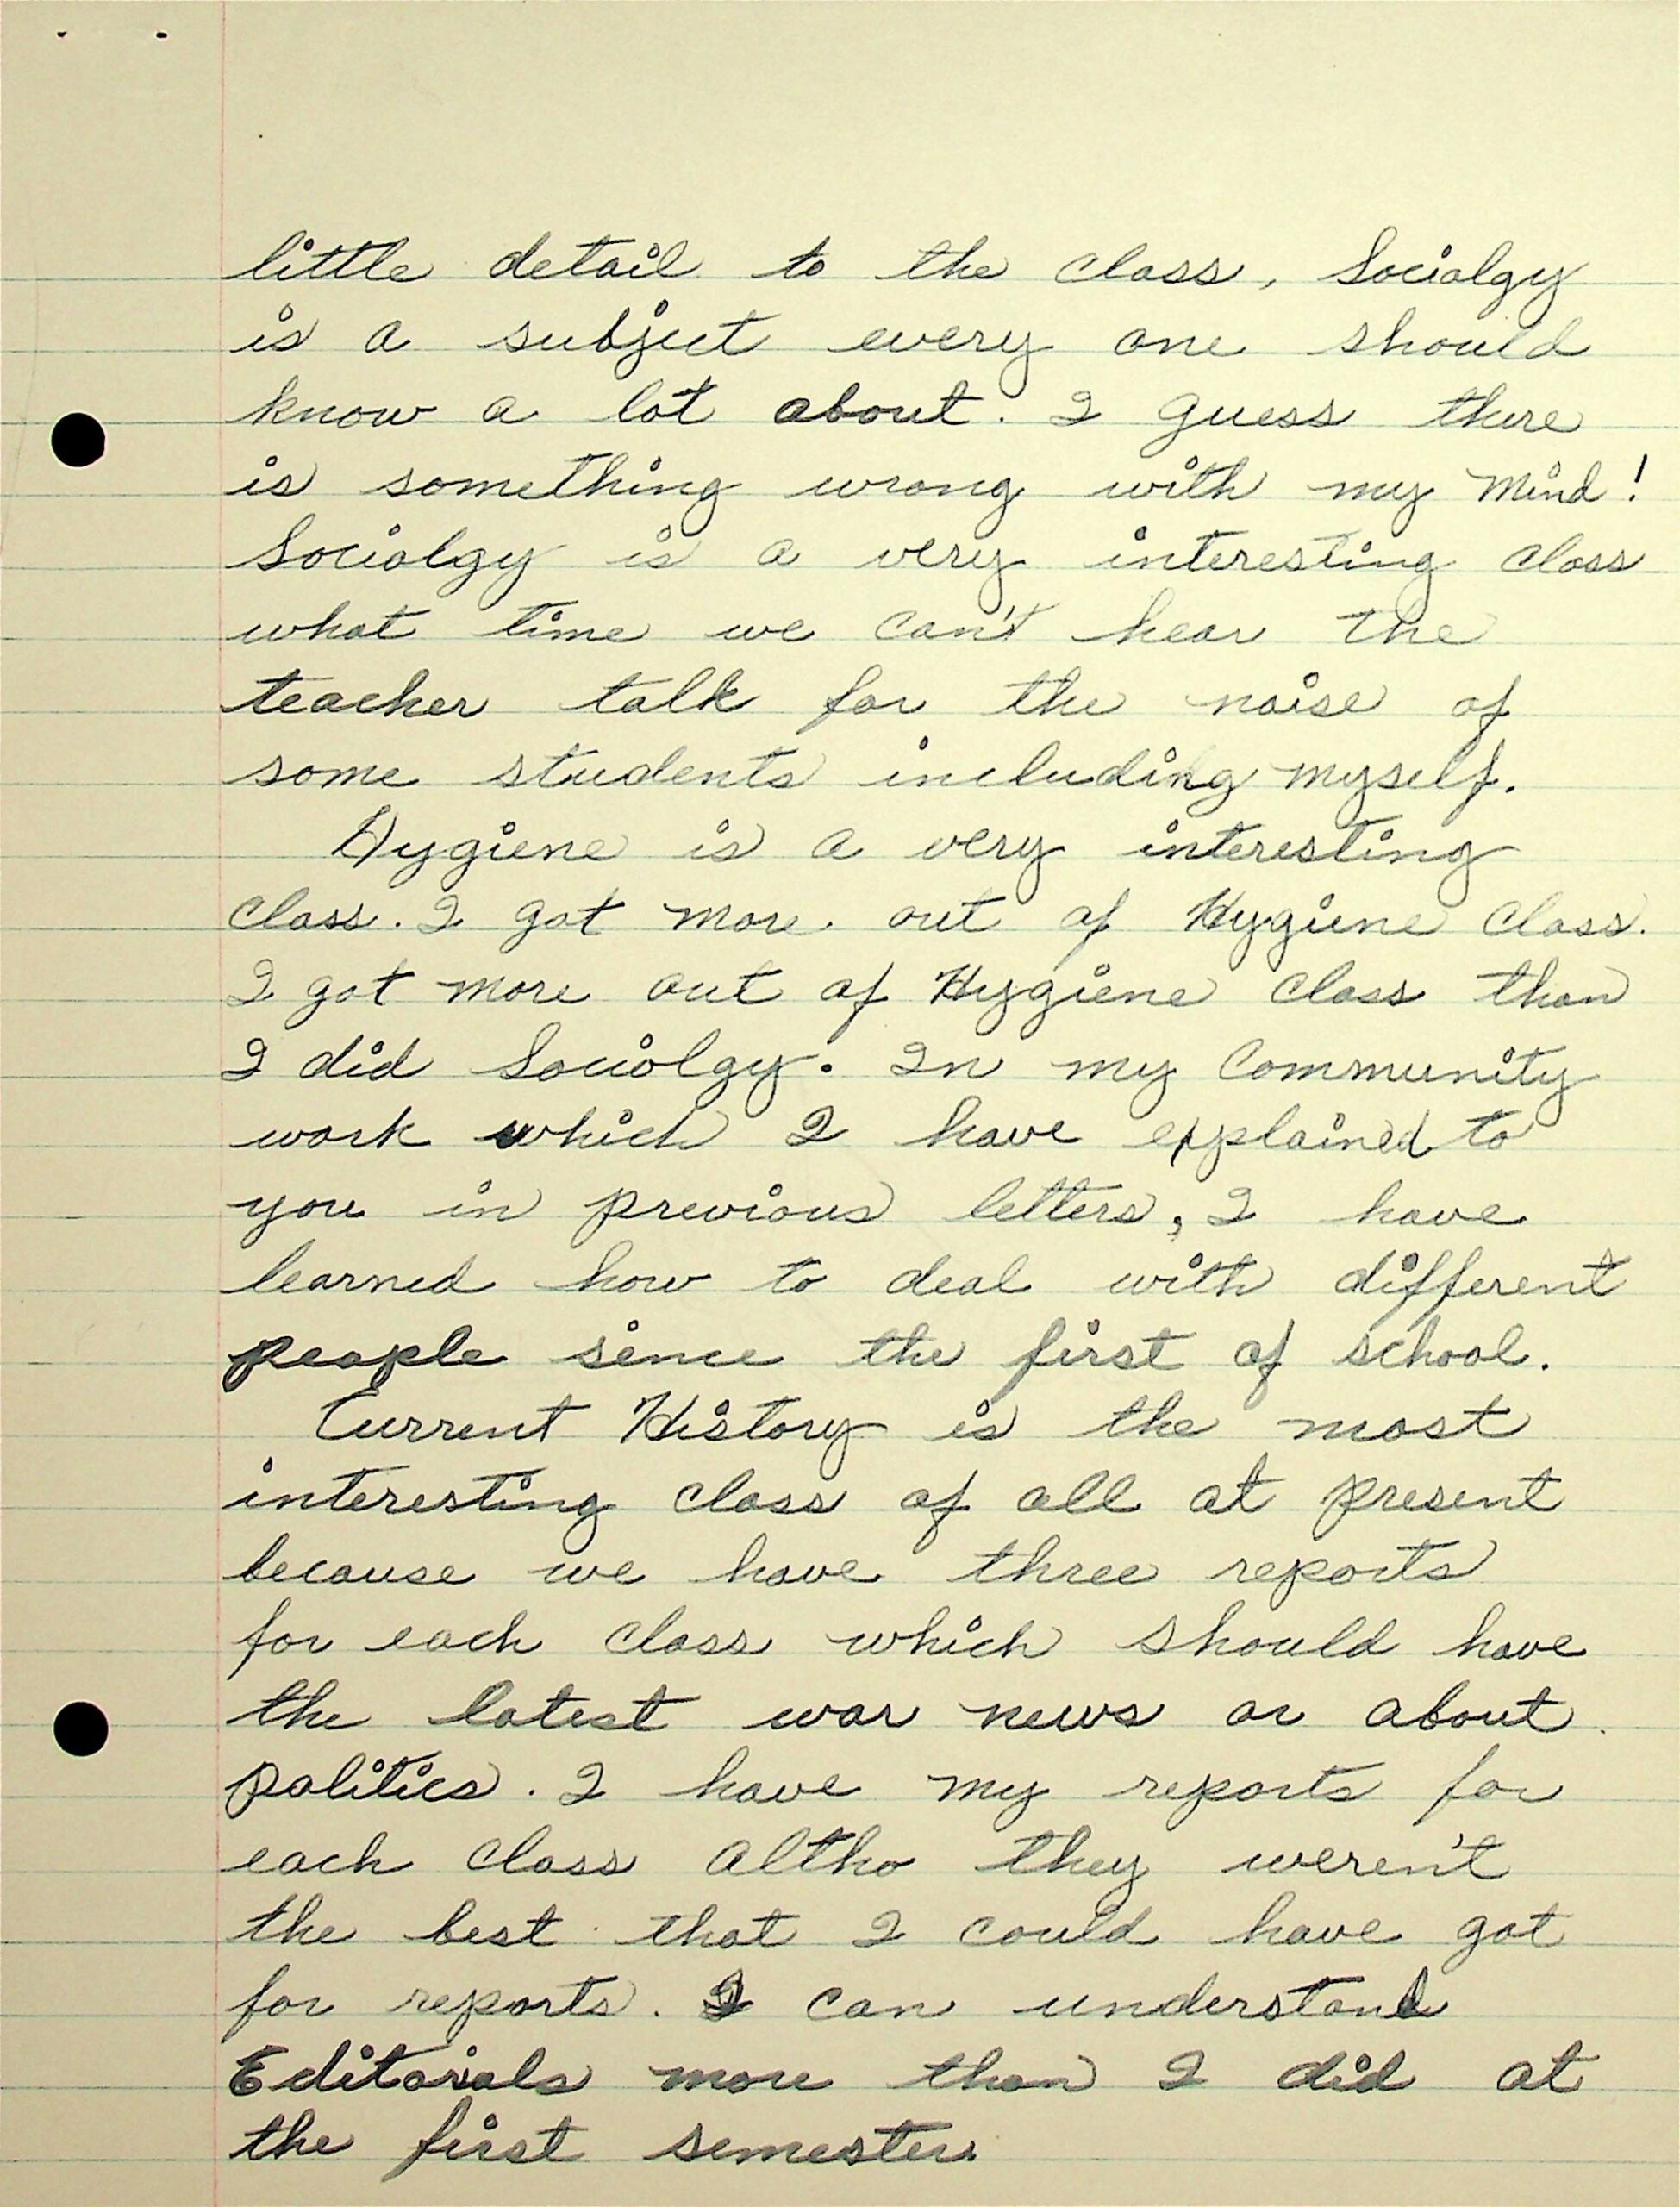 little detail to the class, Sociolgy
is a subject every one should
know a lot about. I guess there
is something wrong with my mind!
Sociolgy is a very interesting class
what time we can't hear the
teacher talk for the noise of
some students including myself.
Hygiene is a very interesting
class. I got more out of Hygiene class.
I got more out of Hygiene class than
I did Sociolgy. In my Community
work which I have explained to
you in previous letters, I have
learned how to deal with different
people since the first of school.
Current History is the most
interesting class of all at present
because we have three reports
for each class which should have
the latest war news or about
politics. I have my reports for
each class altho they weren't
the best that I could have got
for reports. I can understand
Editorials more than I did at
the first semester.